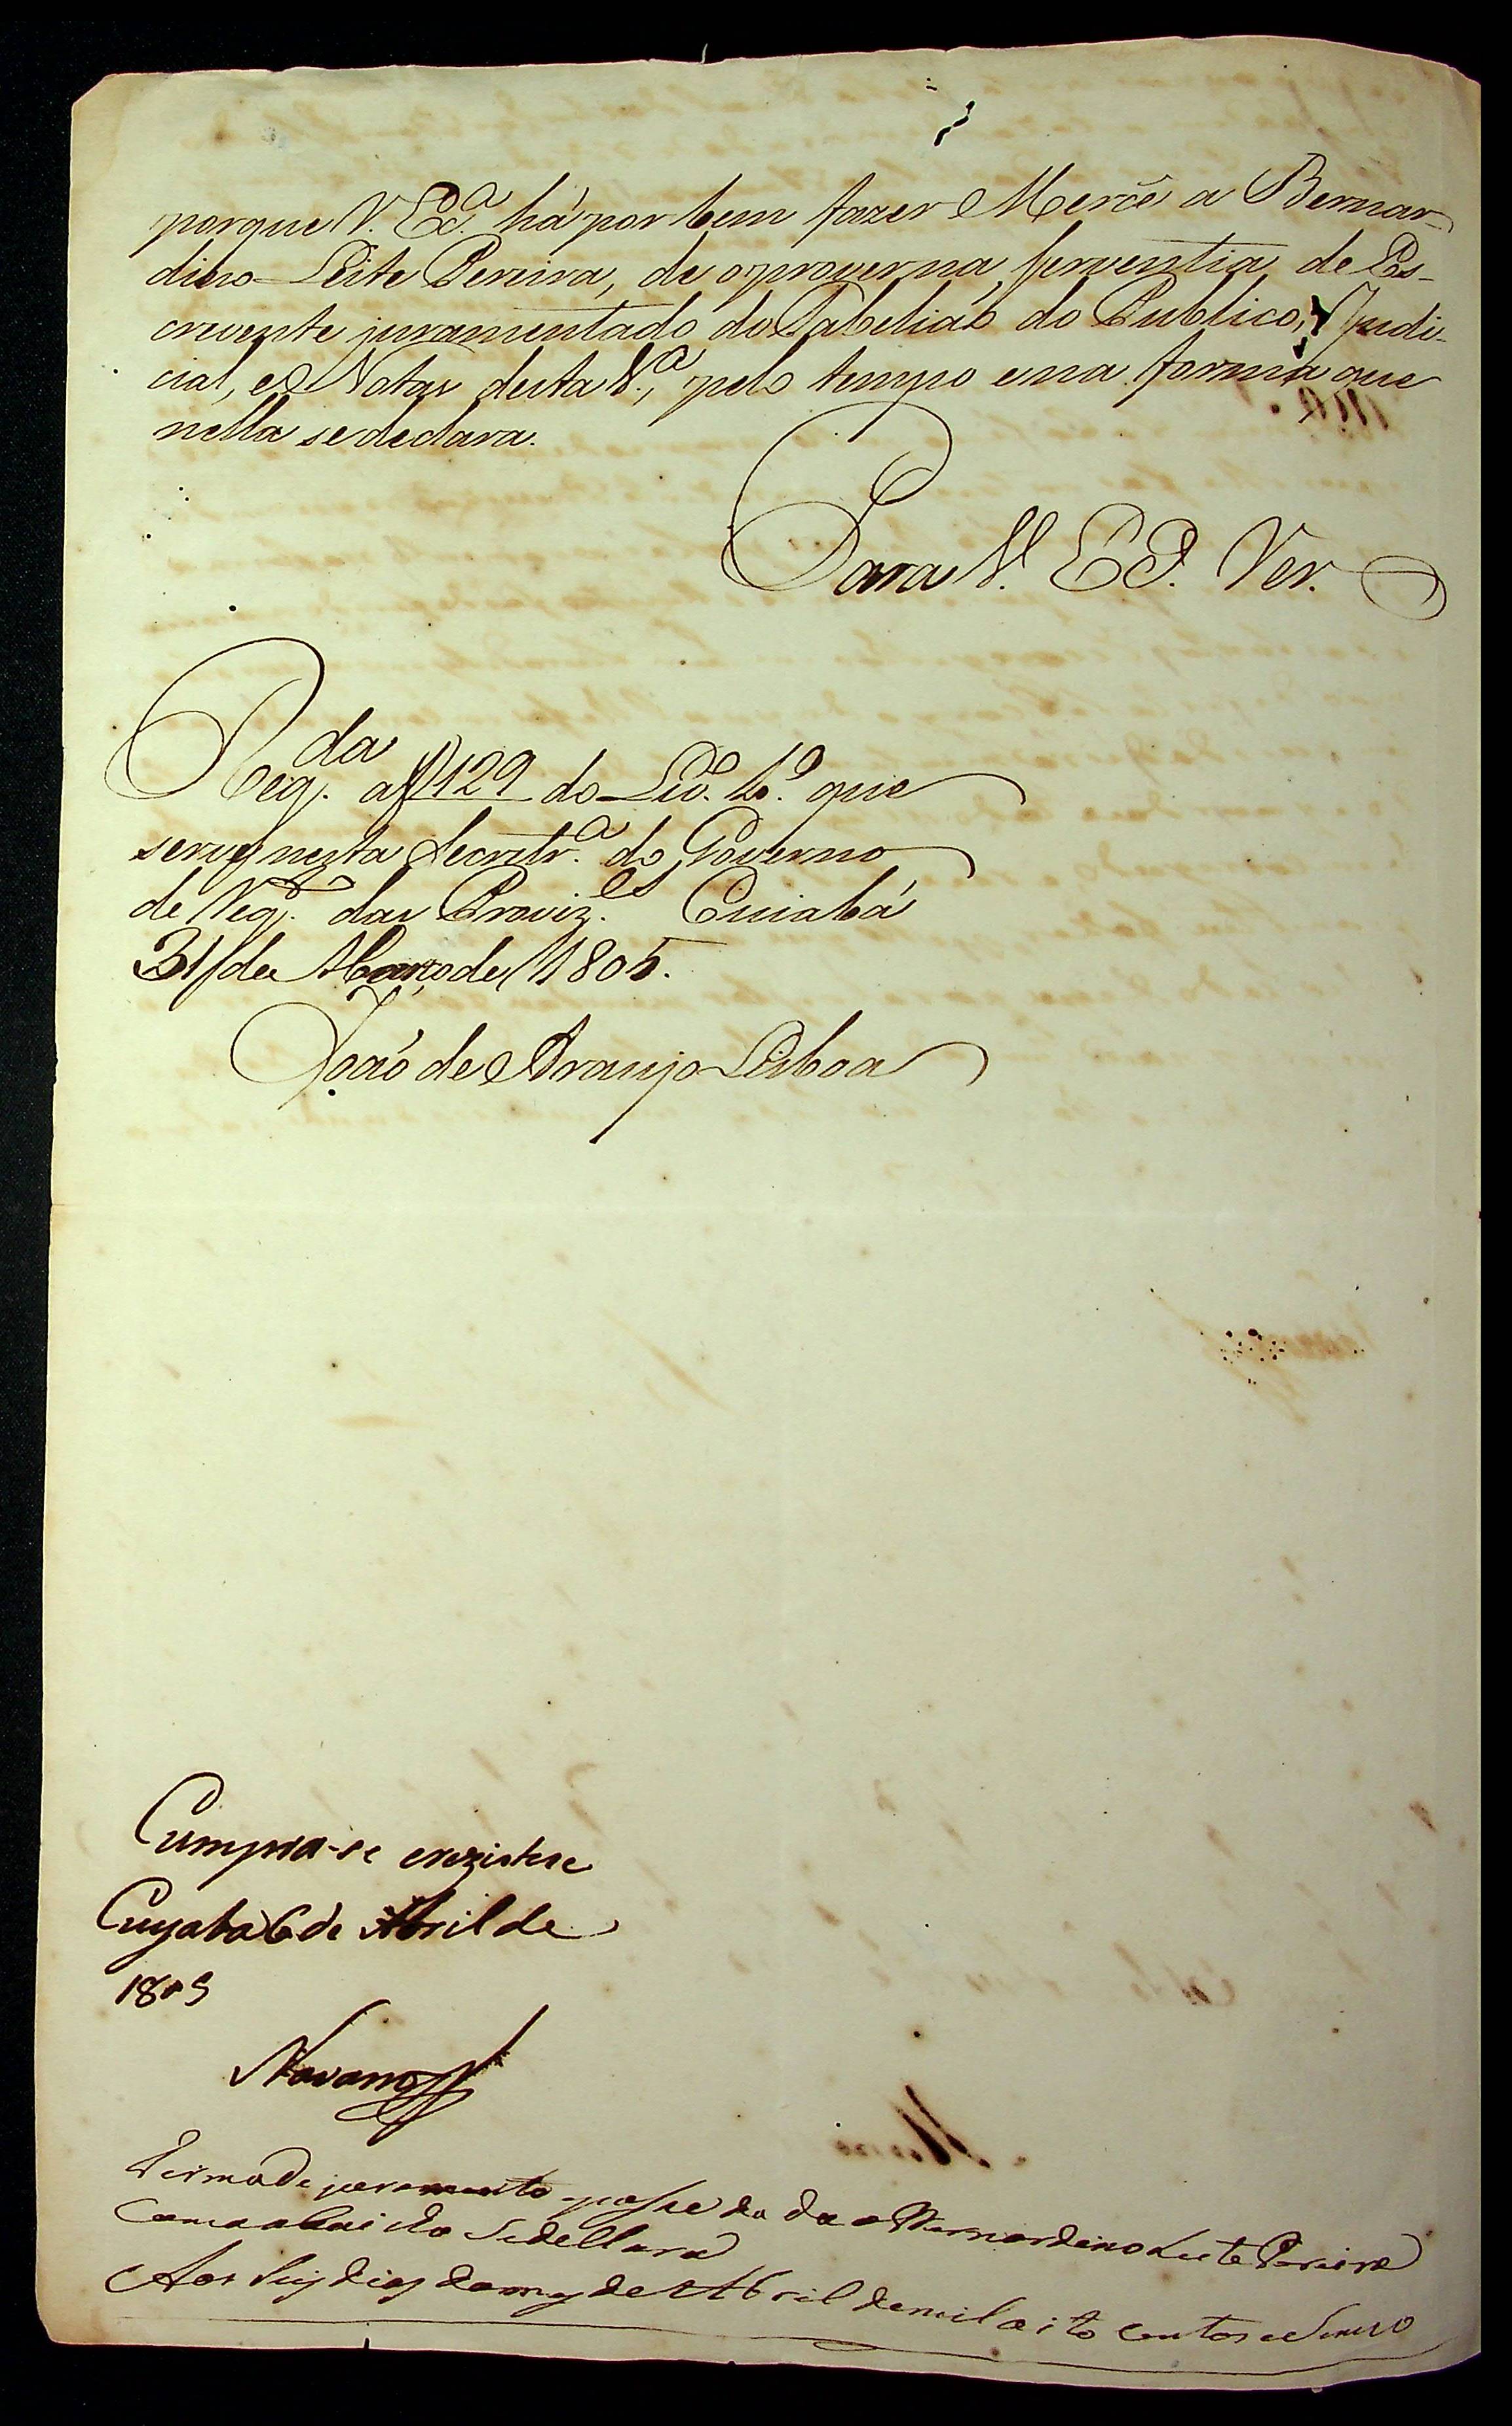 porque V. Ex.ª há por bem fazer Mercê a Bernar
dino Leite Pereira, de o prover na serventia de Es-
crevente juramentado do Tabeliaõ do Publico, Judi-
cial, e Notas desta V.ª, pelo tempo e na forma que
nella se declara.
Para V. Ex. Ver.
Reg.da a f 129 do Liv.º 1.º que
serve nesta Secretr.ª do Governo
de Reg.º das Proviz.es Cuiabá
31 de Março de 1805.
Joaõ de Araujo Lisboa
Cumpra-se e rezistese
Cuyaba 6 de Abril de
1805
Navarro
Termo de juramento e posse dado a Bernardino Leite Pereira
Como abaixo Sedellara
Aos Seis dias do mes de Abril de mil oito centos e Sinco